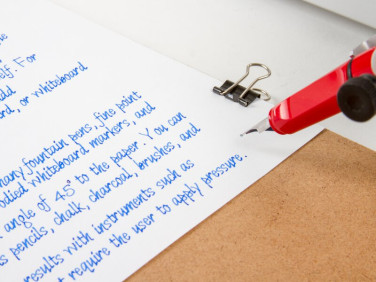 elf. For
or whiteboard
many fountain pens, fine point
whiteboard markers, and
angle of 45° to the paper. You can
pencils, chalk, charcoal, brushes, and
results with instruments such as
require the user to apply pressure.